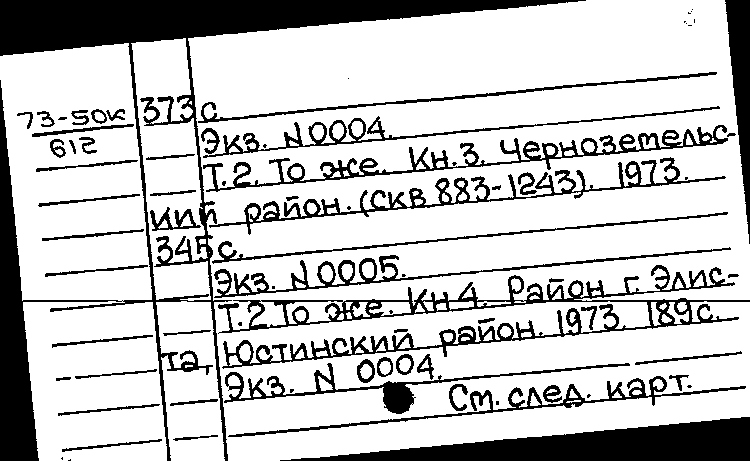 73-50к 373 с.
612
Экз. N0004.
Т.2. То же. Кн.3. Черноземельс-
кий район. (скв 883-1243). 1973.
345 с.
Экз. N0005.
Т.2. То же. Кн4. Район г. Элис-
та, Юстинский район. 1973. 189с.
Экз. N 0004.
См. след. карт.